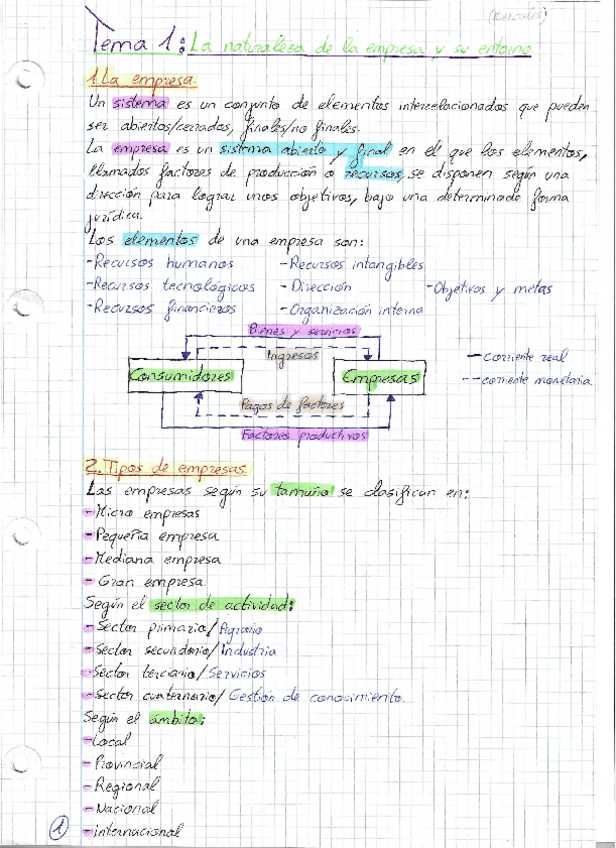 (Manuales)
Tema 1: La naturaleza de la empresa y su entorno
1. La empresa.
Un sistema es un conjunto de elementos interrelacionados que pueden
ser abiertos/cerrados, finales/no finales.
La empresa es un sistema abierto y final en el que los elementos,
llamados factores de producción o recursos, se disponen según una
dirección para lograr unos objetivos, bajo una determinada forma
jurídica.
Los elementos de una empresa son:
-Recursos humanos -Recursos intangibles
-Recursos tecnológicos -Dirección -Objetivos y metas
-Recursos financieros -Organización interna
Bienes y servicios
Ingresos
Consumidores Empresas
— corriente real
-- corriente monetaria
Pagos de factores
Factores productivos
2. Tipos de empresas.
Las empresas según su tamaño se clasifican en:
-Micro empresas
-Pequeña empresa
-Mediana empresa
- Gran empresa
Según el sector de actividad:
-Sector primario/Agrario
-Sector secundario/Industria
-Sector terciario/Servicios
-Sector cuaternario/Gestión de conocimiento.
Según el ámbito:
-Local
-Provincial
-Regional
-Nacional
-internacional
1